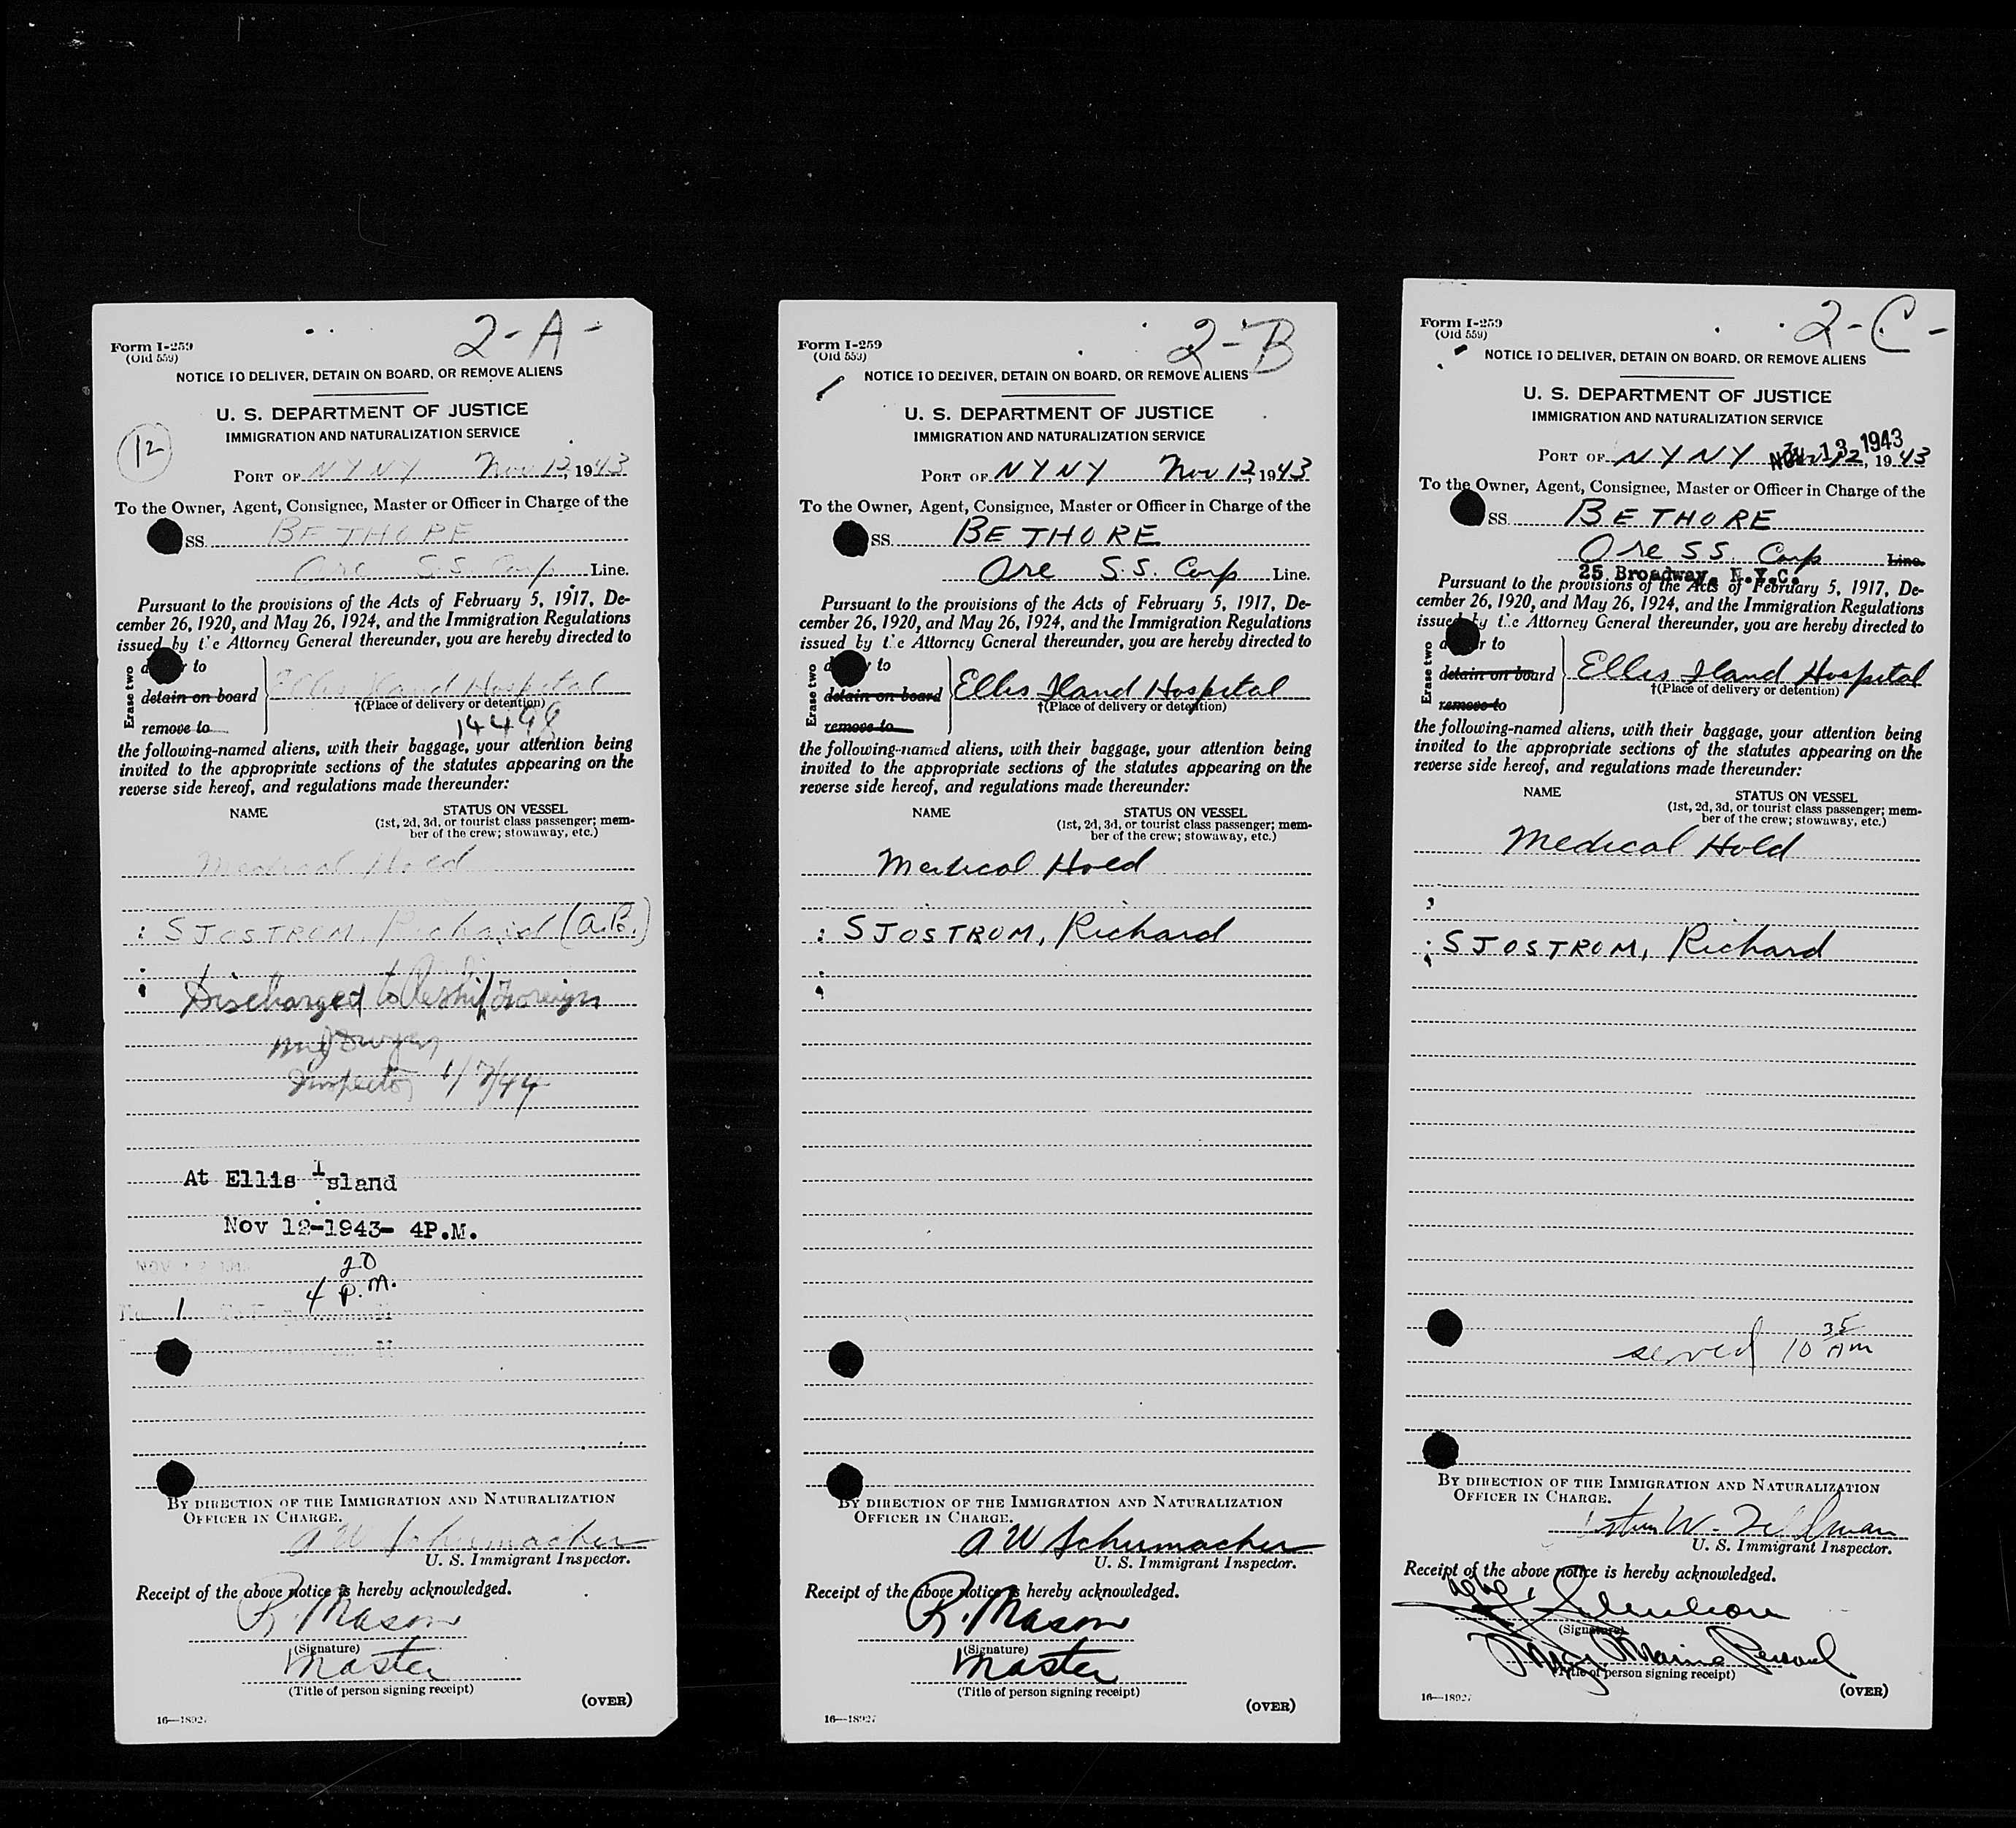 2-A-
Form I-259
(Old 559)
NOTICE TO DELIVER, DETAIN ON BOARD, OR REMOVE ALIENS
U. S. DEPARTMENT OF JUSTICE
IMMIGRATION AND NATURALIZATION SERVICE
12
PORT OF NYNY Nov 12, 1943
To the Owner, Agent, Consignee, Master or Officer in Charge of the
SS. BETHORE
Ore S.S. Corp. Line.
Pursuant to the provisions of the Acts of February 5, 1917, De-
cember 26, 1920, and May 26, 1924, and the Immigration Regulations
issued by the Attorney General thereunder, you are hereby directed to
Erase two
to
detain on board
remove to
Ellis Iland Hospital
†(Place of delivery or detention)
14498
the following-named aliens, with their baggage, your attention being
invited to the appropriate sections of the statutes appearing on the
reverse side hereof, and regulations made thereunder:
NAME STATUS ON VESSEL
(1st, 2d, 3d, or tourist class passenger; mem-
ber of the crew; stowaway, etc.)
Medical Hold
: SJOSTROM, Richard (A.B.)
Discharged to Reship Foreign
Inspector 1/7/44
At Ellis Island
Nov 12-1943- 4P.M.
NOV 12 1943
20
4 P.M.
1
BY DIRECTION OF THE IMMIGRATION AND NATURALIZATION
OFFICER IN CHARGE.
A W Schumacher
U. S. Immigrant Inspector.
Receipt of the above notice is hereby acknowledged.
R. Mason
(Signature)
Master
(Title of person signing receipt)
(OVER)
16—18927
2-B
Form I-259
(Old 559)
NOTICE TO DELIVER, DETAIN ON BOARD, OR REMOVE ALIENS
U. S. DEPARTMENT OF JUSTICE
IMMIGRATION AND NATURALIZATION SERVICE
PORT OF NYNY Nov 12, 1943
To the Owner, Agent, Consignee, Master or Officer in Charge of the
SS. BETHORE
Ore S.S. Corp Line.
Pursuant to the provisions of the Acts of February 5, 1917, De-
cember 26, 1920, and May 26, 1924, and the Immigration Regulations
issued by the Attorney General thereunder, you are hereby directed to
Erase two
to
detain on board
remove to
Ellis Iland Hospital
†(Place of delivery or detention)
the following-named aliens, with their baggage, your attention being
invited to the appropriate sections of the statutes appearing on the
reverse side hereof, and regulations made thereunder:
NAME STATUS ON VESSEL
(1st, 2d, 3d, or tourist class passenger; mem-
ber of the crew; stowaway, etc.)
Medical Hold
: SJOSTROM, Richard
BY DIRECTION OF THE IMMIGRATION AND NATURALIZATION
OFFICER IN CHARGE.
A W Schumacher
U. S. Immigrant Inspector.
Receipt of the above notice is hereby acknowledged.
R. Mason
(Signature)
Master
(Title of person signing receipt)
(OVER)
16—18927
2-C-
Form I-259
(Old 559)
NOTICE TO DELIVER, DETAIN ON BOARD, OR REMOVE ALIENS
U. S. DEPARTMENT OF JUSTICE
IMMIGRATION AND NATURALIZATION SERVICE
NOV 13 1943
PORT OF NYNY Nov 12, 1943
To the Owner, Agent, Consignee, Master or Officer in Charge of the
SS. BETHORE
Ore SS. Corp Line.
25 Broadway, N.Y.C.
Pursuant to the provisions of the Acts of February 5, 1917, De-
cember 26, 1920, and May 26, 1924, and the Immigration Regulations
issued by the Attorney General thereunder, you are hereby directed to
Erase two
to
detain on board
remove to
Ellis Iland Hospital
†(Place of delivery or detention)
the following-named aliens, with their baggage, your attention being
invited to the appropriate sections of the statutes appearing on the
reverse side hereof, and regulations made thereunder:
NAME STATUS ON VESSEL
(1st, 2d, 3d, or tourist class passenger; mem-
ber of the crew; stowaway, etc.)
Medical Hold
: SJOSTROM, Richard
served 10 35 AM
BY DIRECTION OF THE IMMIGRATION AND NATURALIZATION
OFFICER IN CHARGE.
U. S. Immigrant Inspector.
Receipt of the above notice is hereby acknowledged.
(Signature)
Marine
(Title of person signing receipt)
(OVER)
16—18927